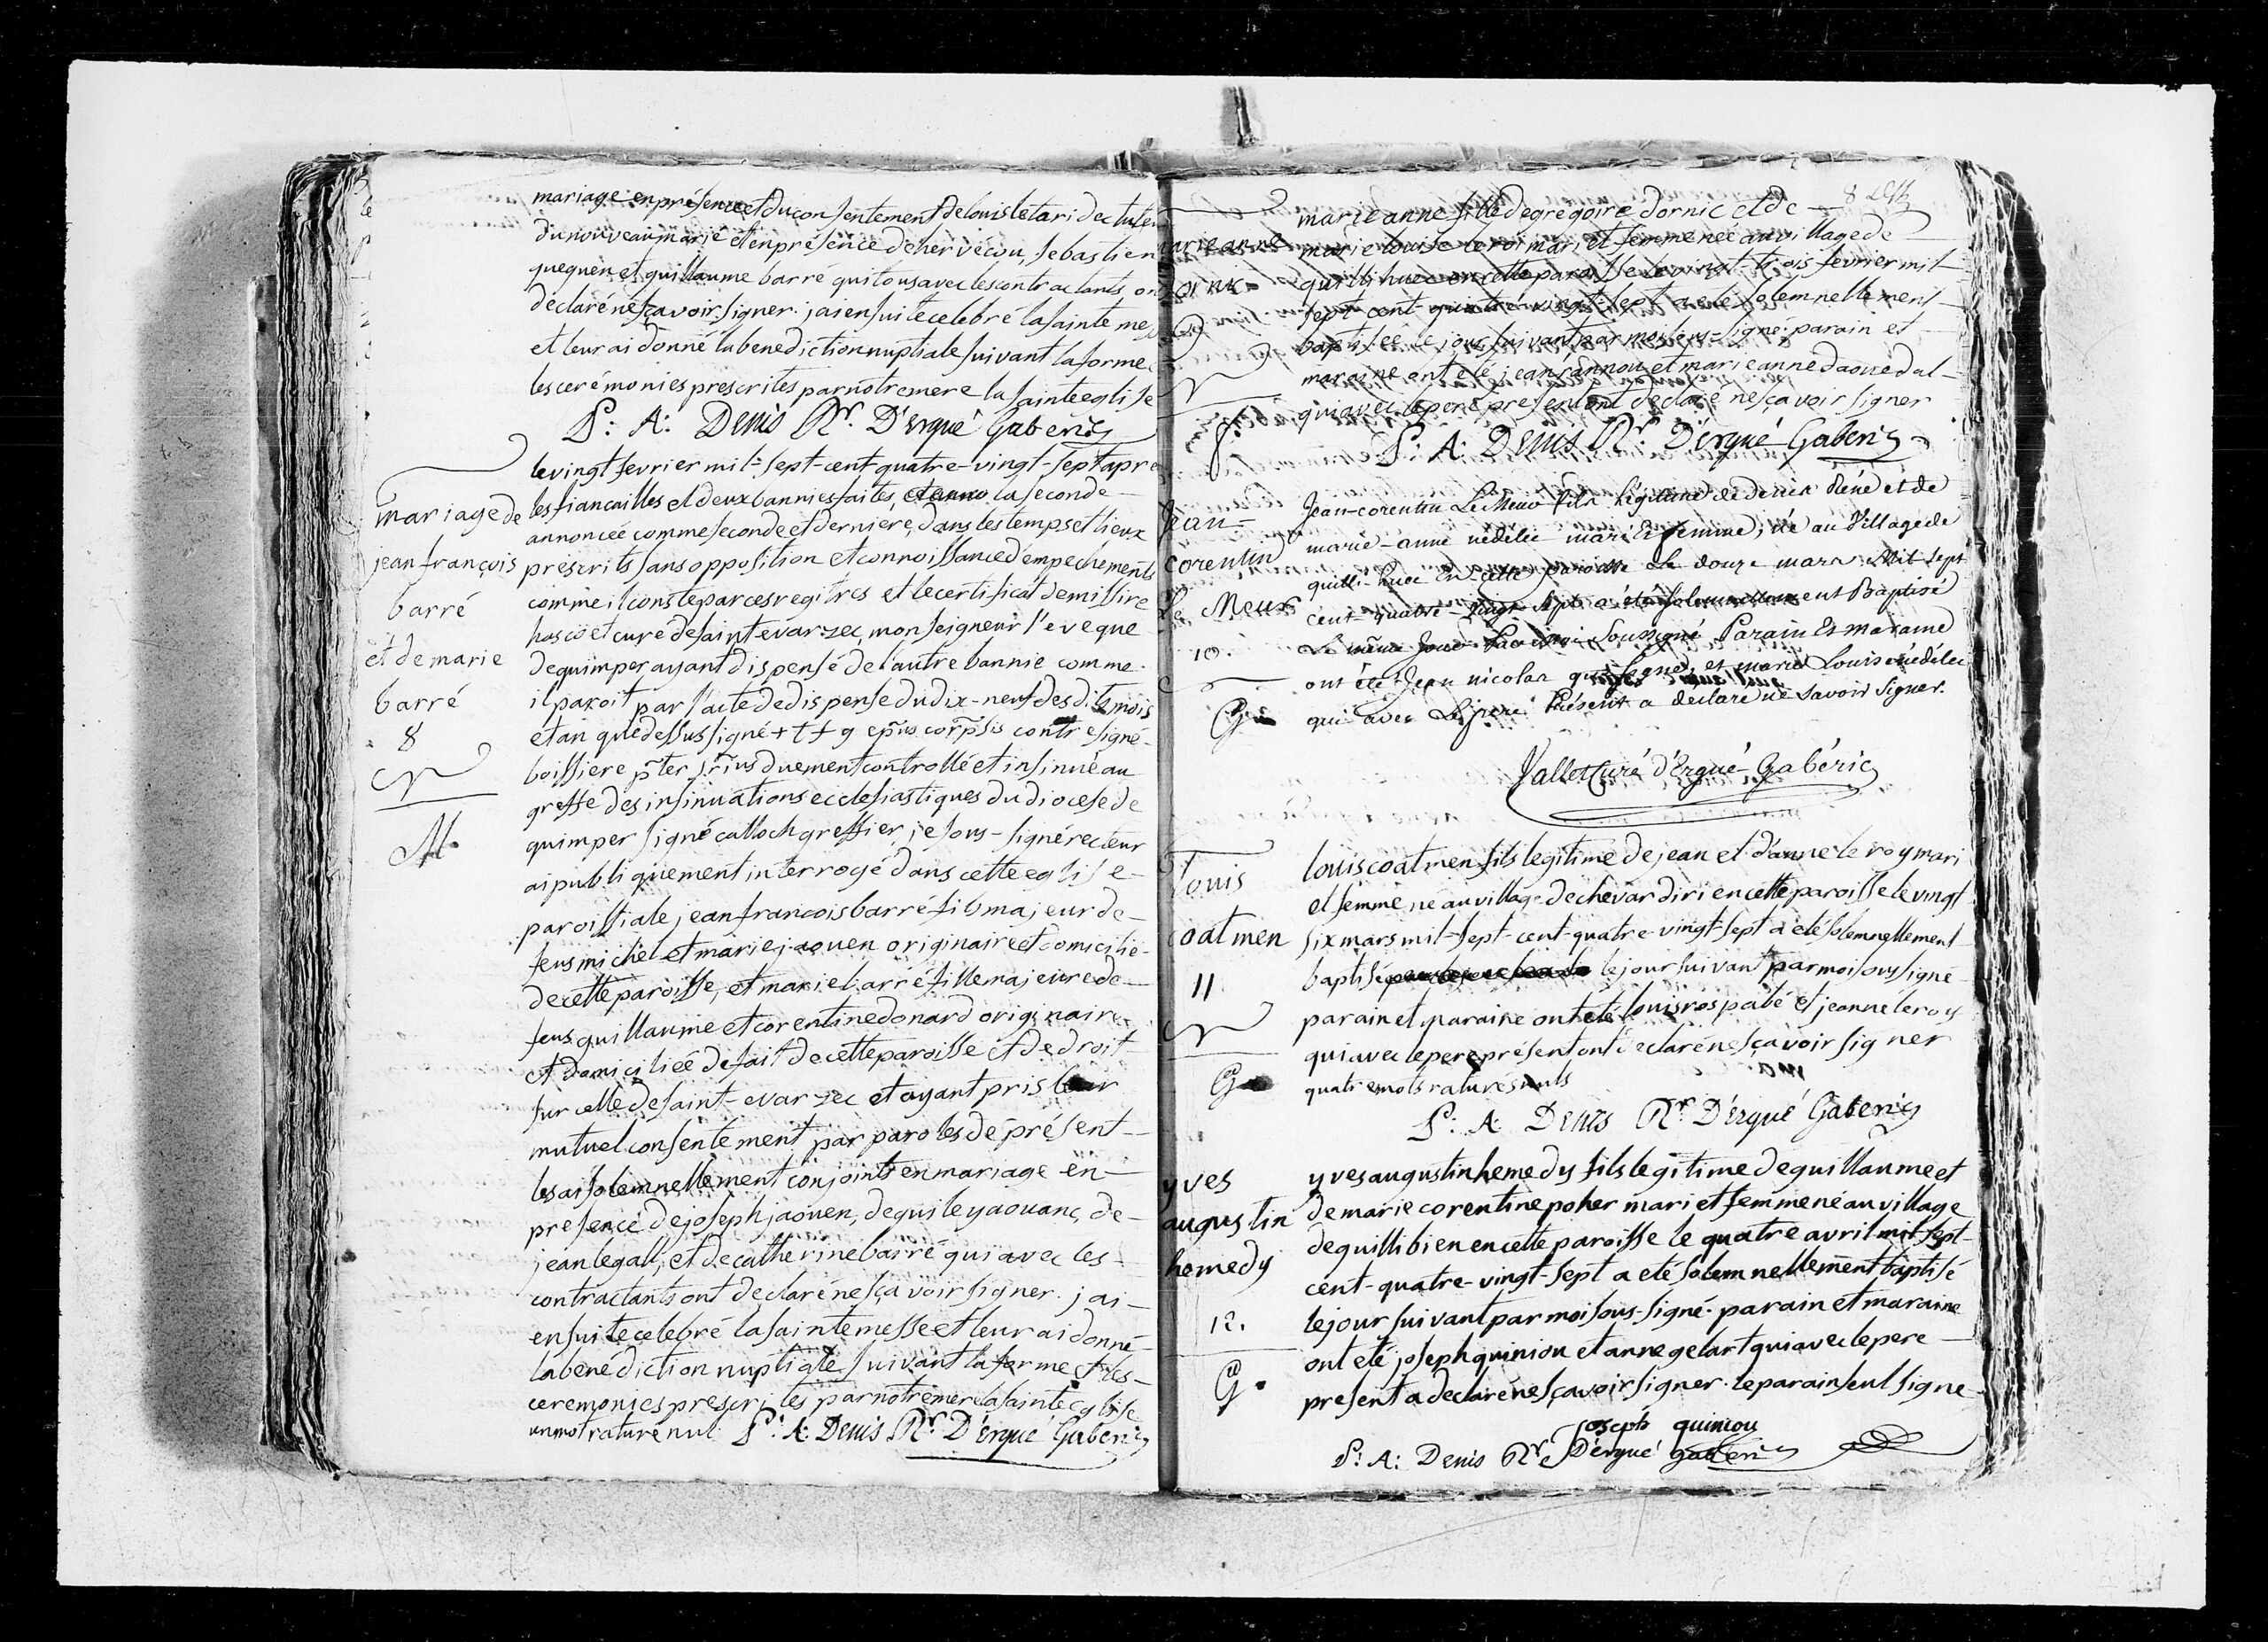 mariage en présence et du consentement de louis le tari dec tuteu
du nouveau marié et en présence de hervé cou, sebastien
queguen et guillaume barré qui tous avec les contractants on
declaré ne sçavoir signer. j ai ensuite celebré la sainte mes
et leur ai donné la benediction nuptiale suivant la forme
les cerémonies prescrites par notre mere la sainte eglise
P: A: Denis Rr. D'ergué Gaberic
mariage de
jean françois
barré
et de marie
barré
8
M.
le vingt fevrier mil-sept-cent quatre-vingt-sept apre
les fiancailles et deux bannies faites, la seconde
annoncée comme seconde et derniere, dans les temps et lieux
prescrits sans opposition et connoissance d'empechements
comme il conste par ces registres et le certificat de missire
hascoet curé de saint evarzec, monseigneur l'eveque
de quimper ayant dispensé de l'autre bannie comme
il paroit par l'acte de dispense du dix-neuf desdits mois
et an que dessus signé + t + g epus corpsis contresigné
boissiere pter srius duement controllé et insinué au
greffe des insinuations ecclesiastiques du diocese de
quimper signé calloch greffier, je sous-signé recteur
ai publiquement interrogé dans cette eglise
paroissiale jean francois barré fils majeur de
feus michel et marie jaouen originaire et domicilié
de cette paroisse, et marie barré fille majeure de
feus guillaume et corentine donard originaire
et domiciliée de fait de cette paroisse et de droit
sur celle de saint-evarzec et ayant pris leur
mutuel consentement par paroles de présent
les ai solemnellement conjoints en mariage en
presence de joseph jaouen, de gui le yaouanc, de
jean le gall, et de catherine barré qui avec les
contractants ont declaré ne sçavoir signer. j ai
ensuite celebré la sainte messe et leur ai donné
la benédiction nuptiale suivant la forme et les
ceremonies prescrites par notre mere la sainte eglise
un mot raturé nul P: A: Denis Rr. D'ergué Gaberic
8
arie anne
ornic
9
marie anne fille de gregoire dornic et de
marie louise le roi mari et femme née au village de
quillihuec en cette paroisse le vingt-trois fevrier mil
sept-cent quatre-vingt-sept a eté solemnellement
baptisée le jour suivant par moi sous-signé. parain et
maraine ont eté jean rannou et marie anne daouedal
qui avec le pere present ont declaré ne sçavoir signer
P: A: Denis Rr. D'ergué Gaberic
Jean-
corentin
Le Meur
10.
G
Jean-corentin Le Meur fils légitime de René et de
marie-anne nédélec mari Et femme, né au Village de
quilli-huec En cette paroisse Le douze mars Mil Sept
cent-quatre-Vingt Sept a été Solemnellement Baptisé
Le même Jour Par moi Soussigné Parain Et maraine
ont été Jean nicolas qui Signe, et marie Louise nédélec
qui avec Le pere Présent a déclaré ne Savoir Signer.
Vallet Curé d'Ergué-Gabéric
louis
coatmen
11
G
louis coatmen fils legitime de jean et d'anne le roy mari
et femme né au village de chevardiri en cette paroisse le vingt
six mars mil-sept-cent-quatre-vingt-sept a eté solemnellement
baptisé le jour suivant par moi sous signé
parain et maraine ont eté louis rospabé et jeanne le roy
qui avec le pere présent ont declaré ne sçavoir signer
quatre mots raturés nuls
P: A: Denis Rr. D'ergué Gaberic
yves
augustin
hemedy
12.
G
yves augustin hemedy fils legitime de guillaume et
de marie corentine poher mari et femme né au village
de quillibien en cette paroisse le quatre avril mil sept-
cent-quatre-vingt-sept a eté solemnellement baptisé
le jour suivant par moi sous-signé. parain et maraine
ont eté joseph quiniou et anne gelart qui avec le pere
present a declaré ne sçavoir signer. le parain seul signe
Joseph quiniou
P: A: Denis Rr. D'ergué Gaberic